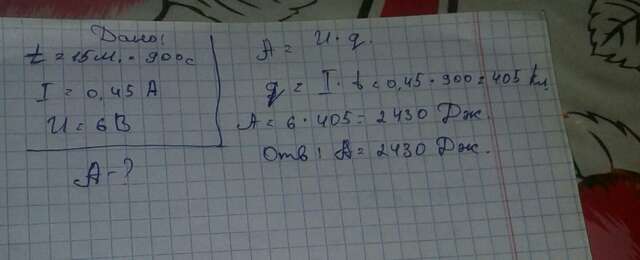 Дано:
t = 15 м. = 900 с
I = 0,45 А
U = 6 В
А - ?
A = U · q.
q = I · t = 0,45 · 900 = 405 Кл
A = 6 · 405 = 2430 Дж.
Отв: A = 2430 Дж.